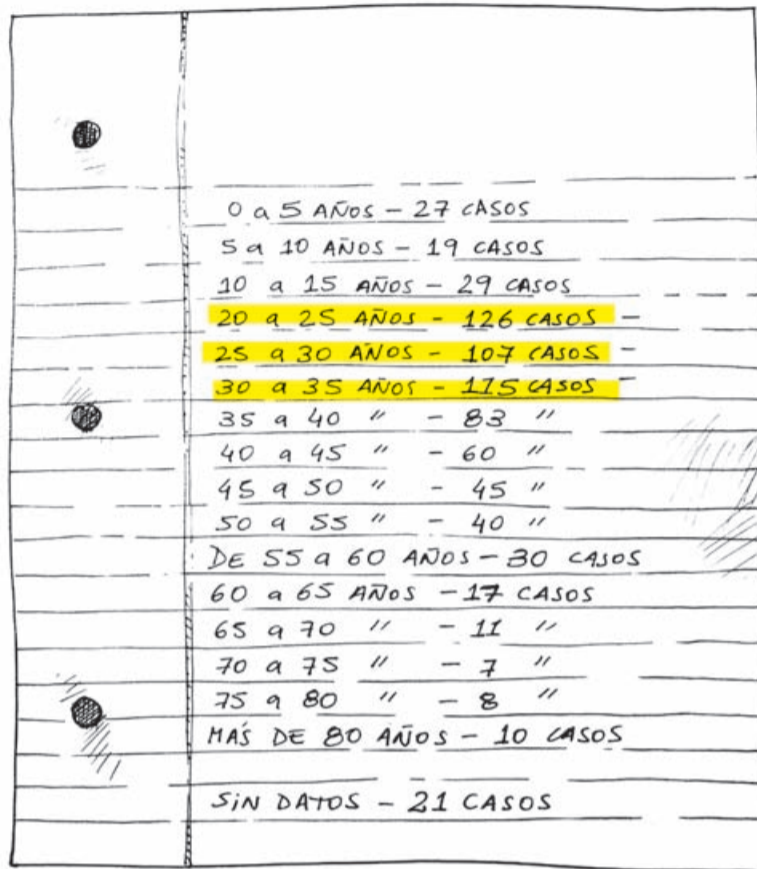 0 a 5 AÑOS - 27 CASOS
5 a 10 AÑOS - 19 CASOS
10 a 15 AÑOS - 29 CASOS
20 a 25 AÑOS - 126 CASOS -
25 a 30 AÑOS - 107 CASOS -
30 a 35 AÑOS - 115 CASOS -
35 a 40 " - 83 "
40 a 45 " - 60 "
45 a 50 " - 45 "
50 a 55 " - 40 "
DE 55 a 60 AÑOS - 30 CASOS
60 a 65 AÑOS - 17 CASOS
65 a 70 " - 11 "
70 a 75 " - 7 "
75 a 80 " - 8 "
MÁS DE 80 AÑOS - 10 CASOS
SIN DATOS - 21 CASOS